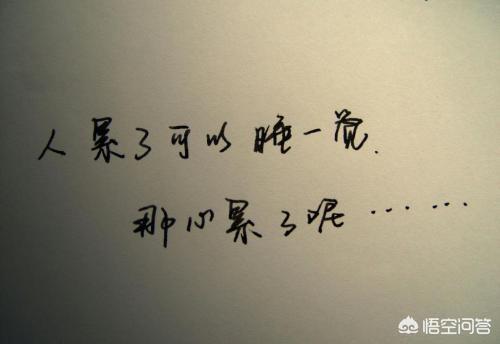 人累了可以睡一觉.
那心累了呢……
悟空问答